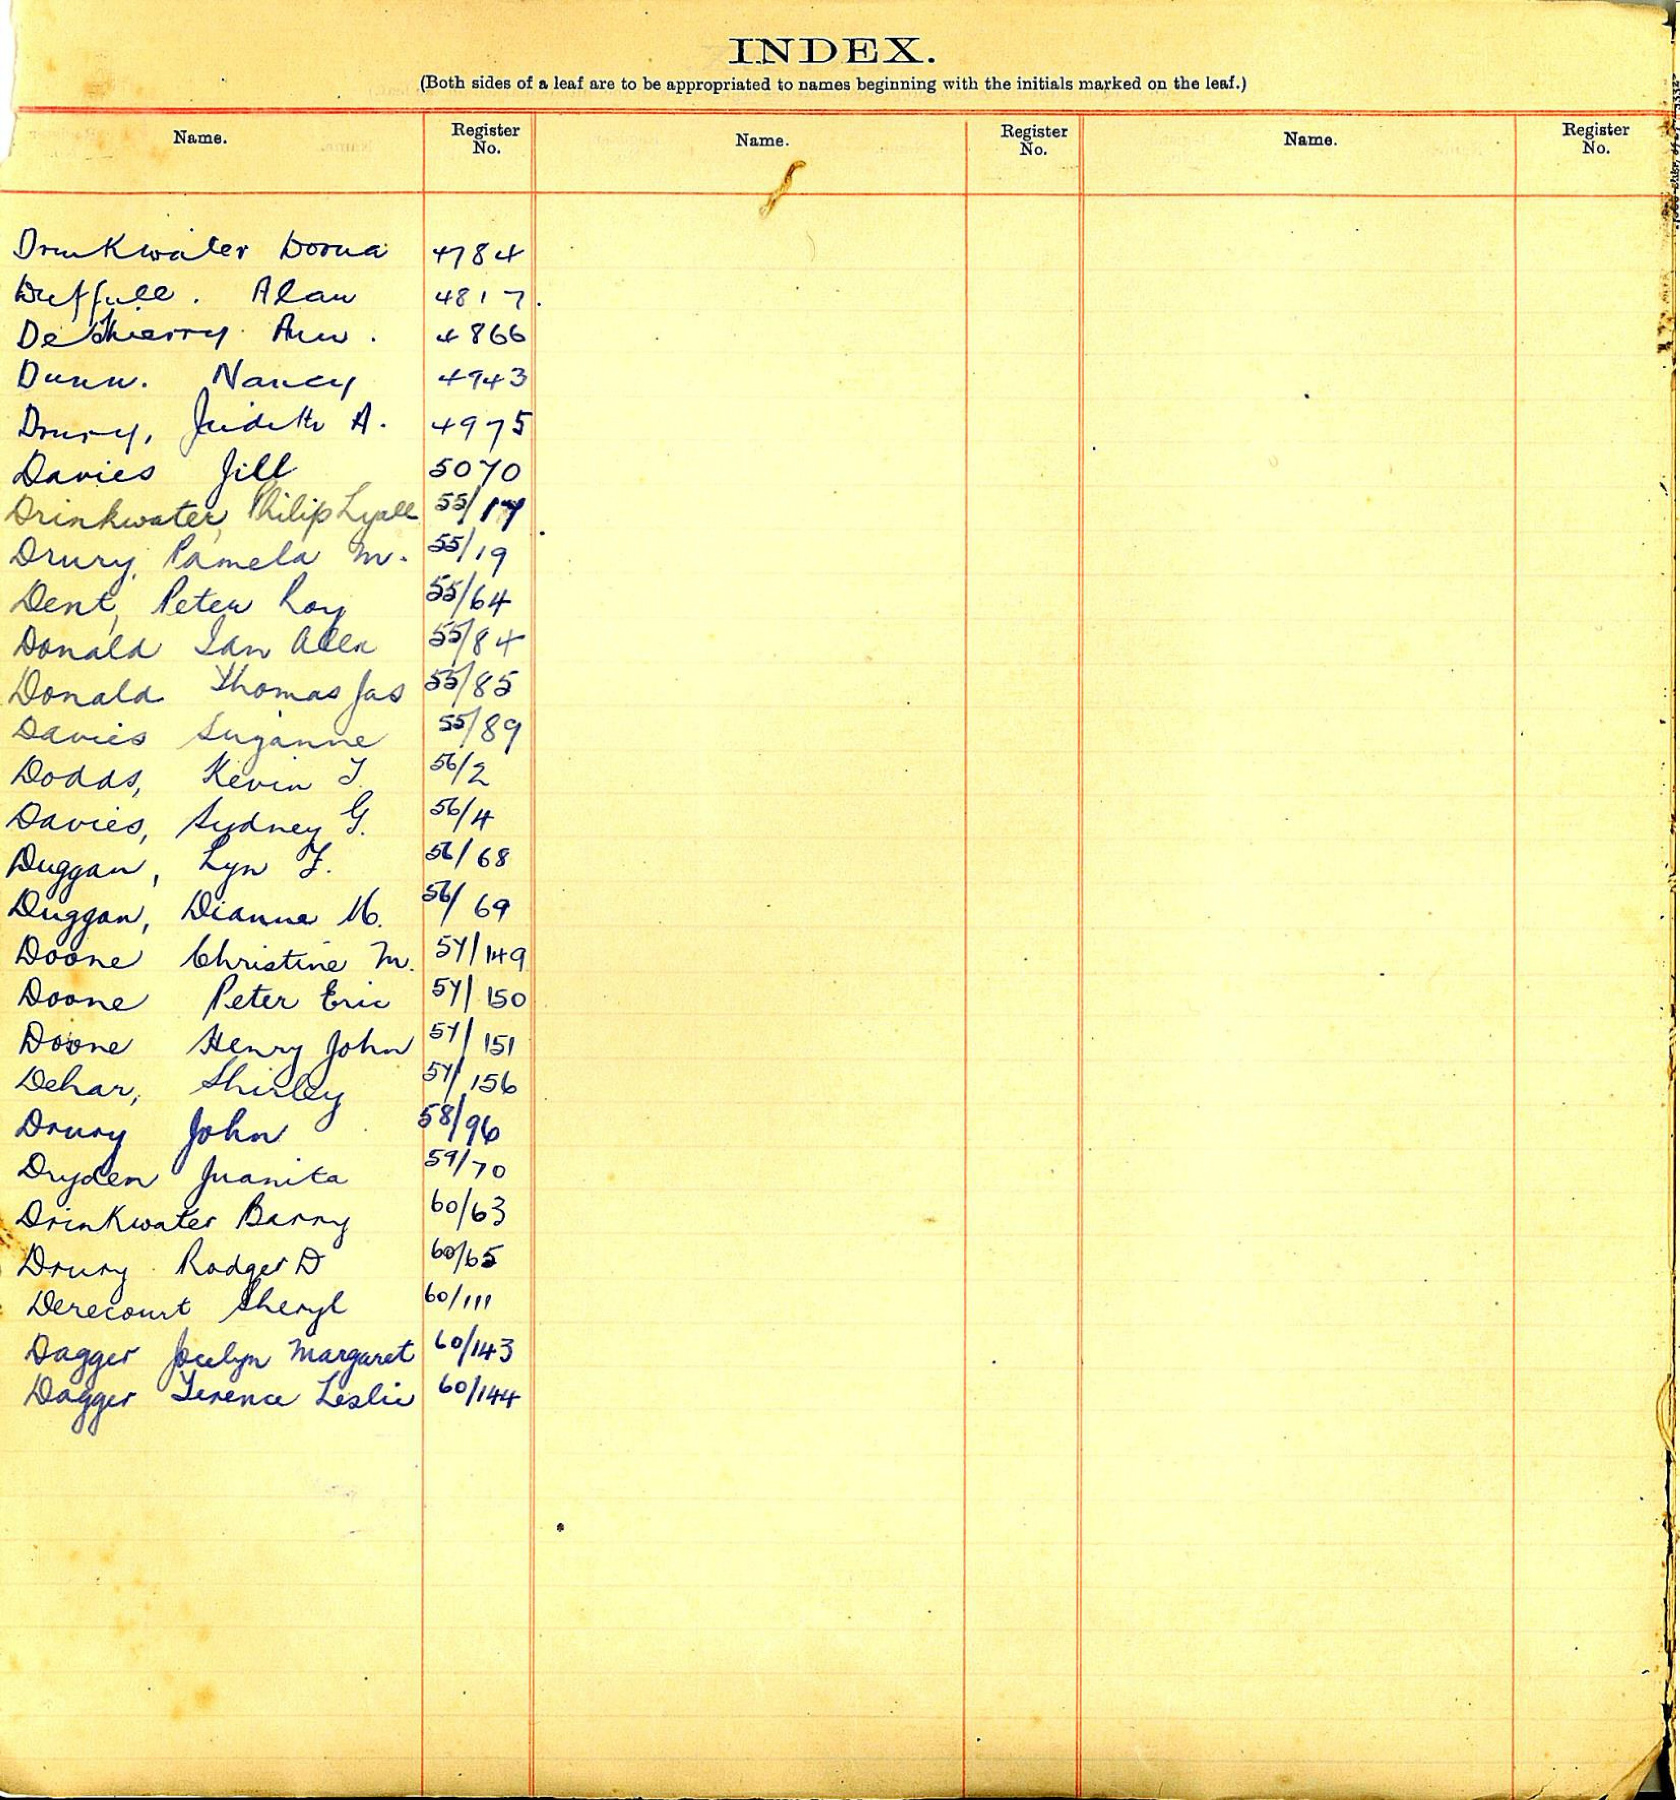 INDEX.
(Both sides of a leaf are to be appropriated to names beginning with the initials marked on the leaf.)
Name. Register No. Name. Register No. Name. Register No.
Drinkwater Donna 4784
Duffull. Alan 4817.
De Thierry Ann. 4866
Dunn. Nancy 4943
Drury, Judith A. 4975
Davies Jill 5070
Drinkwater, Philip Lyall 55/17
Drury, Pamela M. 55/19
Dent, Peter Roy 55/64
Donald Ian Alex 55/84
Donald Thomas Jas 55/85
Davies Suzanne 55/89
Dodds, Kevin T. 56/2
Davies, Sydney G. 56/4
Duggan, Lyn F. 56/68
Duggan, Dianne M. 56/69
Doone Christine M. 57/149
Doone Peter Eric 57/150
Doone Henry John 57/151
Dehar, Shirley 57/156
Drury John 58/96
Dryden Juanita 59/70
Drinkwater Barry 60/63
Drury Rodger D 60/65
Derecourt Sheryl 60/111
Dagger Jocelyn Margaret 60/143
Dagger Terence Leslie 60/144